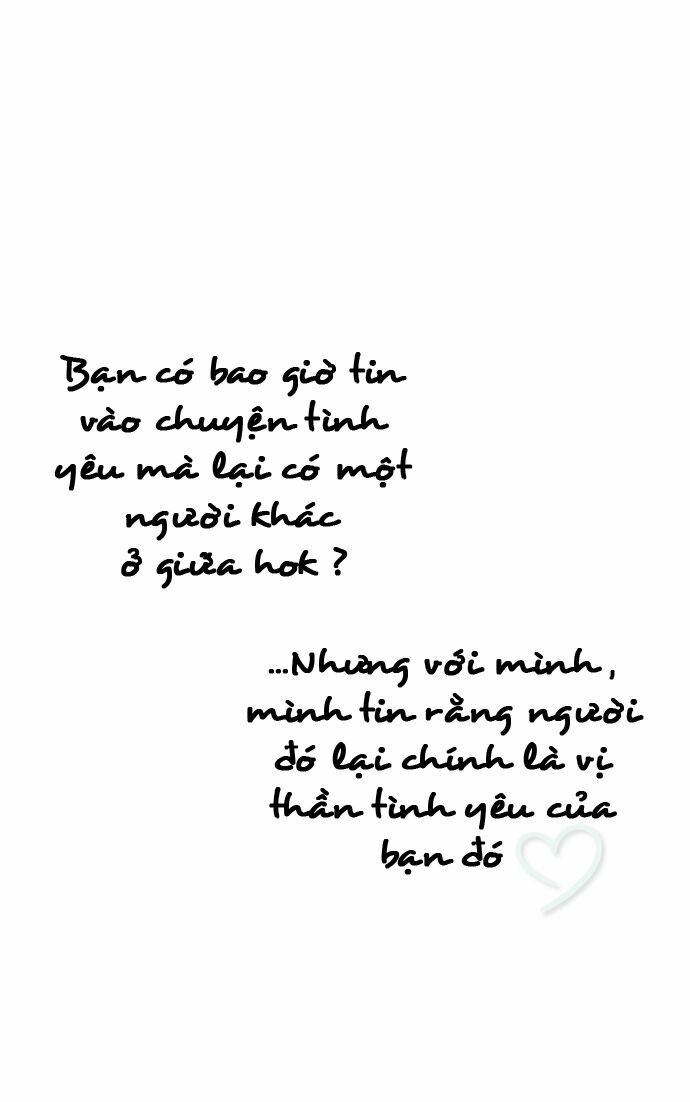 Bạn có bao giờ tin
vào chuyện tình
yêu mà lại có một
người khác
ở giữa hok ?
...Nhưng với mình,
mình tin rằng người
đó lại chính là vị
thần tình yêu của
bạn đó